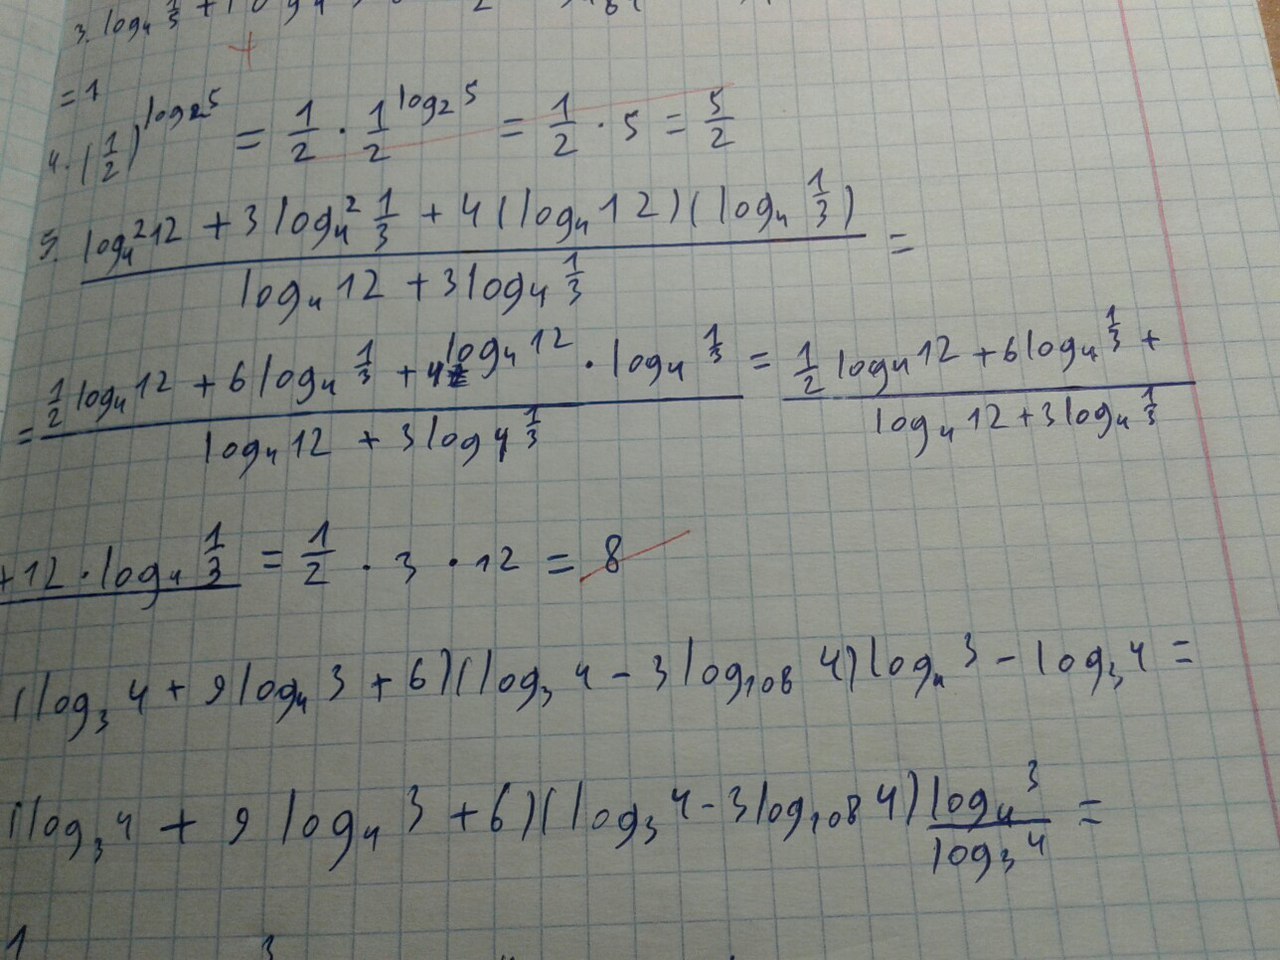 3. log₄ 1/3 + log₄
= 1
4. (1/2)^(log₂5) = 1/2 · 1/2^(log₂5) = 1/2 · 5 = 5/2
5. (log₄²12 + 3log₄² 1/3 + 4(log₄12)(log₄ 1/3)) / (log₄12 + 3log₄ 1/3) =
= (1/2 log₄12 + 6log₄ 1/3 + 4log₄12 · log₄ 1/3) / (log₄12 + 3log₄ 1/3) = (1/2 log₄12 + 6log₄ 1/3 +) / (log₄12 + 3log₄ 1/3)
+ 12 · log₄ 1/3 = 1/2 · 3 · 12 = 8
(log₃4 + 9log₄3 + 6)(log₃4 - 3log₁₀₈4)log₄3 - log₃4 =
(log₃4 + 9log₄3 + 6)(log₃4 - 3log₁₀₈4) log₄3 / log₃4 =